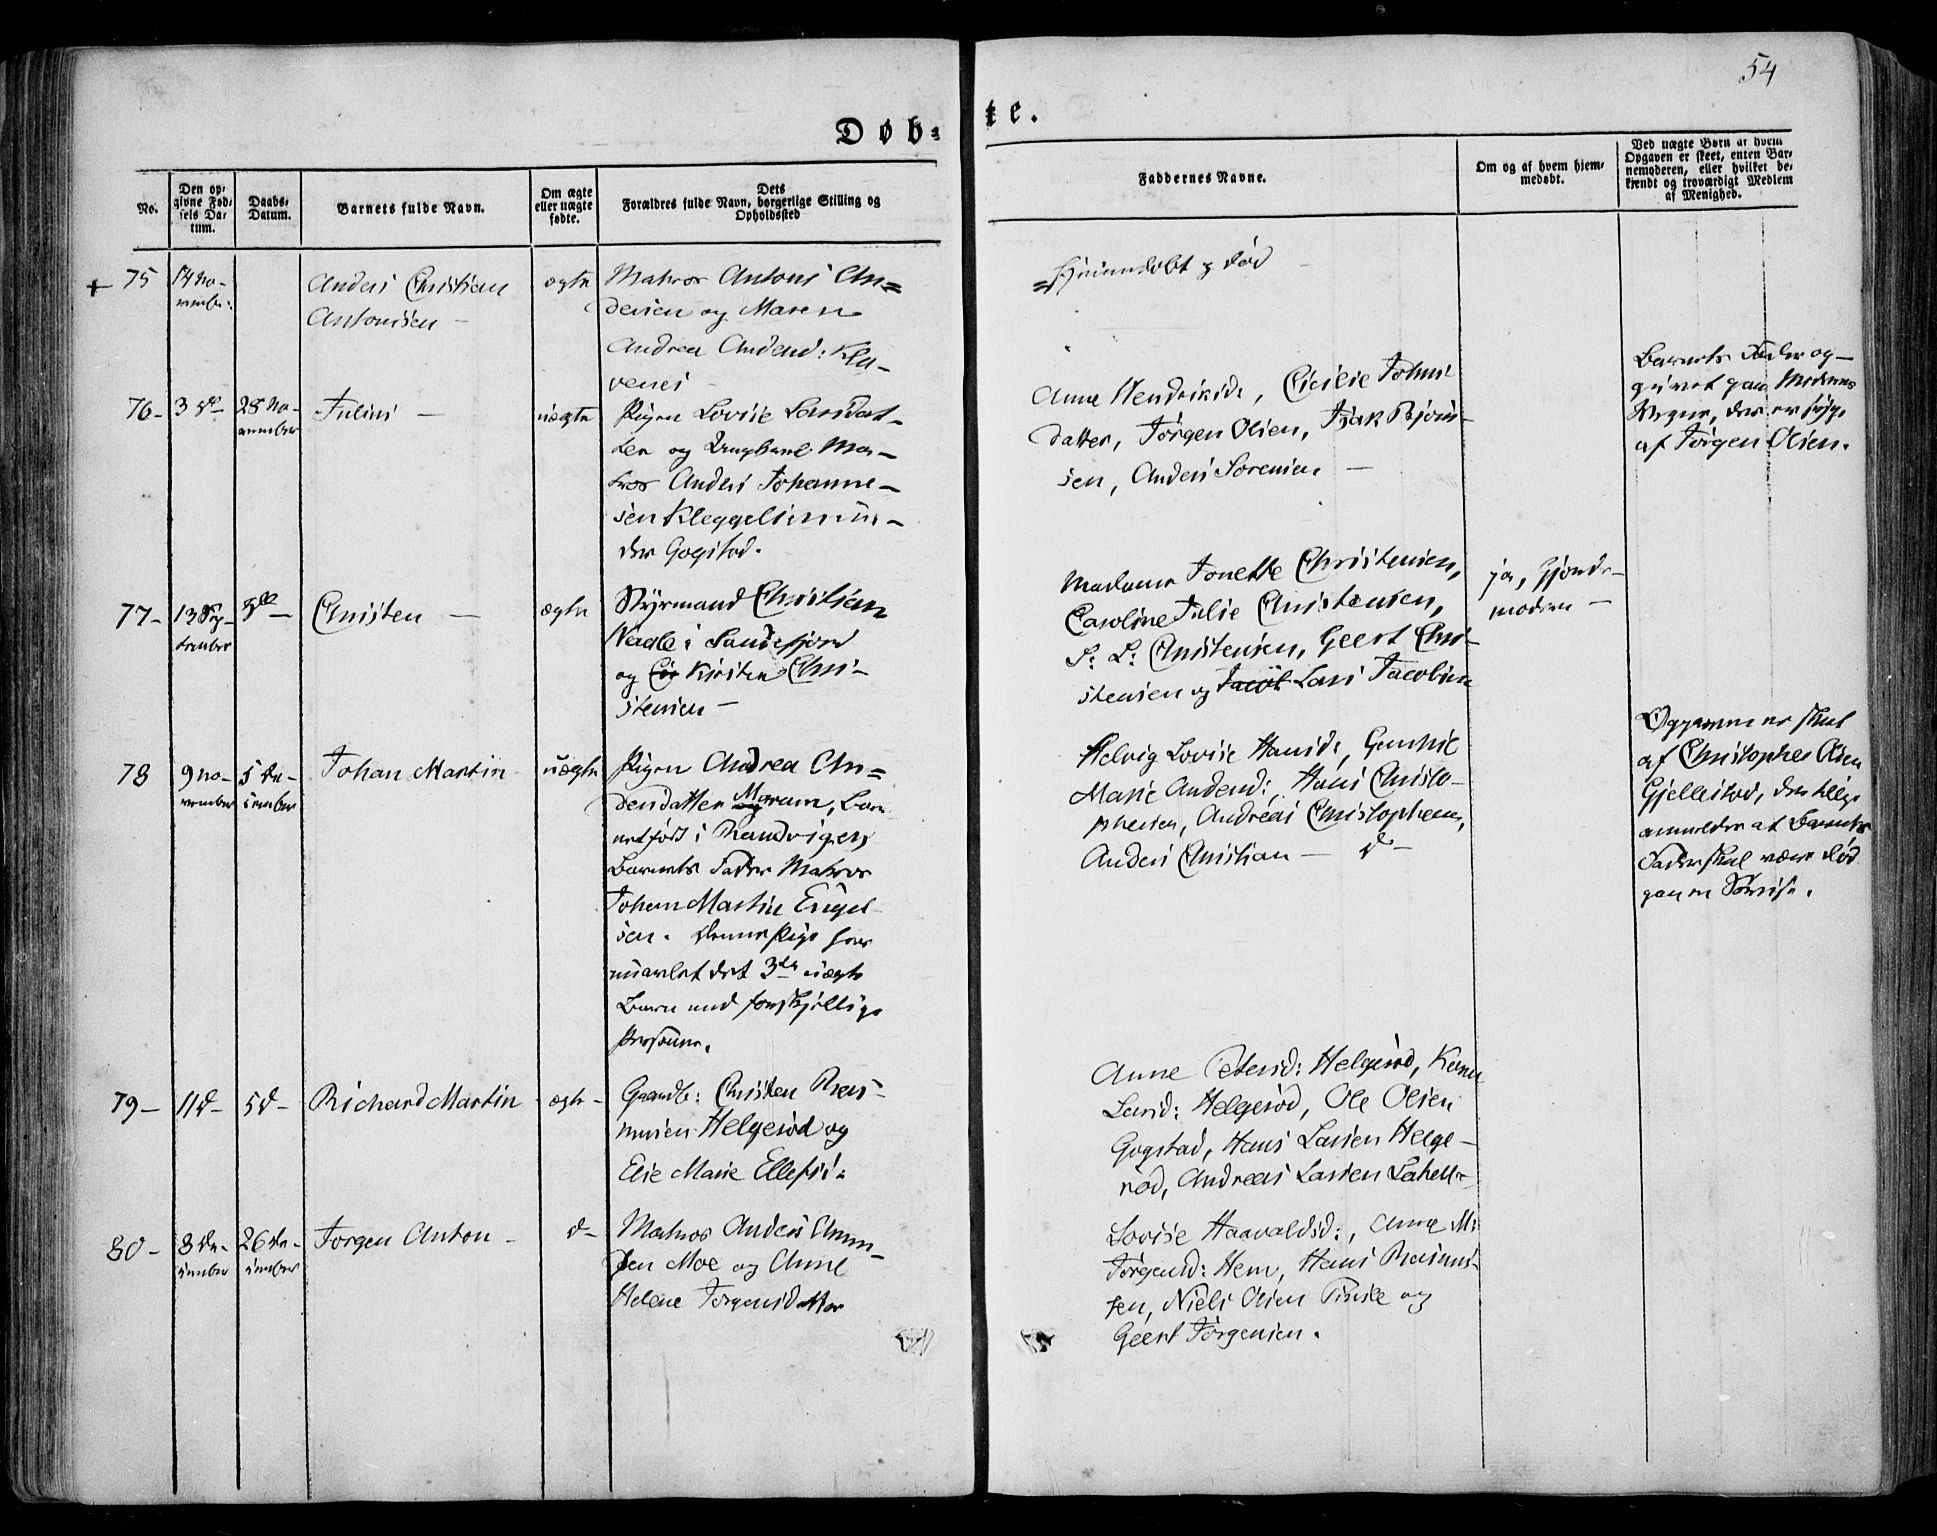 54
Døb=
te.
No.
Den op=
givne Fød=
sels Da=
tum.
Daabs=
Datum.
Barnets fulde Navn.
Om ægte
eller uægte
fødte.
Dets
Forældres fulde Navn, borgerlige Stilling og
Opholdssted
Faddernes Navne.
Om og af hvem hjem=
medøbt.
Ved uægte Børn af hvem
Opgaven er skeet, enten Bar=
nemoderen, eller hvilket be=
kjendt og troværdigt Medlem
af Menighed.
+ 75
14 no-
vember
Anders Christian
Antonisen -
ægte
Matros Antoni An=
dersen og Maren
Andrea Andersd: Kla-
venes
Hjemmedøbt og død
76-
3 d-
28 No-
vember
Julius -
uægte
Pigen Lovise Larsdat-
ter og Ungkarl Ma-
tros Anders Johanne-
sen Kleggelsim un-
der Gogstad.
Anne Hendriksd:, Cicilie Johns
datter, Jørgen Olsen, Isak Bjøns-
sen, Anders Sørensen -
Barnets Fader op-
givet paa Moderens
Vegne, der er syg,
af Jørgen Olsen.
77-
13 Sep-
tember
d -
Christen -
ægte
Styrmand Christian
Nadle i Sandefjord
og Kirsten Chri-
stensen -
Madame Tonette Christensen,
Caroline Julie Christensen,
S: L: Christensen, Geert Chri-
stensen og Jacob Lars Jacobsen
ja, Gjorde-
moderen -
78
9 no-
vember
5 De-
cember
Johan Martin
uægte
Pigen Andrea An=
dersdatter Moram, Bar
net født i Randvigen
Barnets Fader Matros
Johan Martin Engel
sen. Denne Pige har
nu avlet det 3de uægte
Barn med forskjellige
Personer.
Helvig Lovise Hansd:, Gunhil
Marie Andersd:, Hans Christo-
phersen, Andreas Christophersen,
Anders Christian - d -
Opgaven er skeet
af Christopher Olsen
Gjellestad, der tillige
anmelder at Barnets
Fader skal være død
paa en Sørejse.
79-
11 d-
5 d-
Richard Martin
ægte -
Gaardb: Christen Ras-
musen Helgerød og
Else Marie Ellefsd:
Anne Petersd: Helgerød, Karen
Larsd: Helgerød, Ole Olsen
Gogstad, Hans Larsen Helge-
rød, Andreas Larsen
80-
8 De-
cember
26 De-
cember
Jørgen Anton -
d-
Matros Anders Amun-
sen Moe og Anne
Helene Jørgensdatter
Lovise Haavaldsd:, Anne M:
Jørgensd: Hem, Hans Rasmus-
sen, Niels Olsen Pinsle og
Geert Jørgensen.